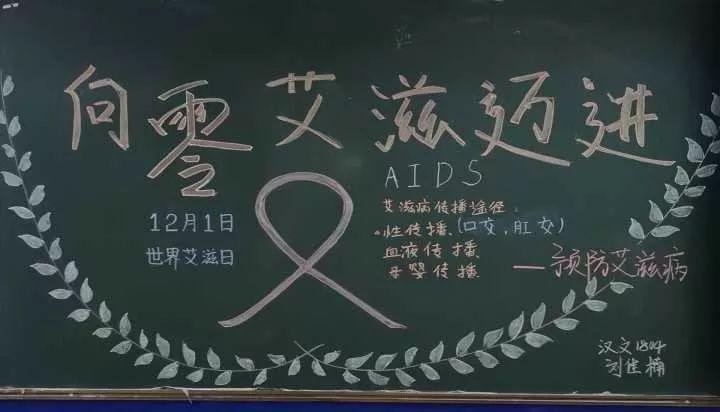 向零艾滋迈进
AIDS
12月1日
世界艾滋日
艾滋病传播途径:
性传播、(口交,肛交)
血液传播
母婴传播
——预防艾滋病
汉文1804
刘佳楠